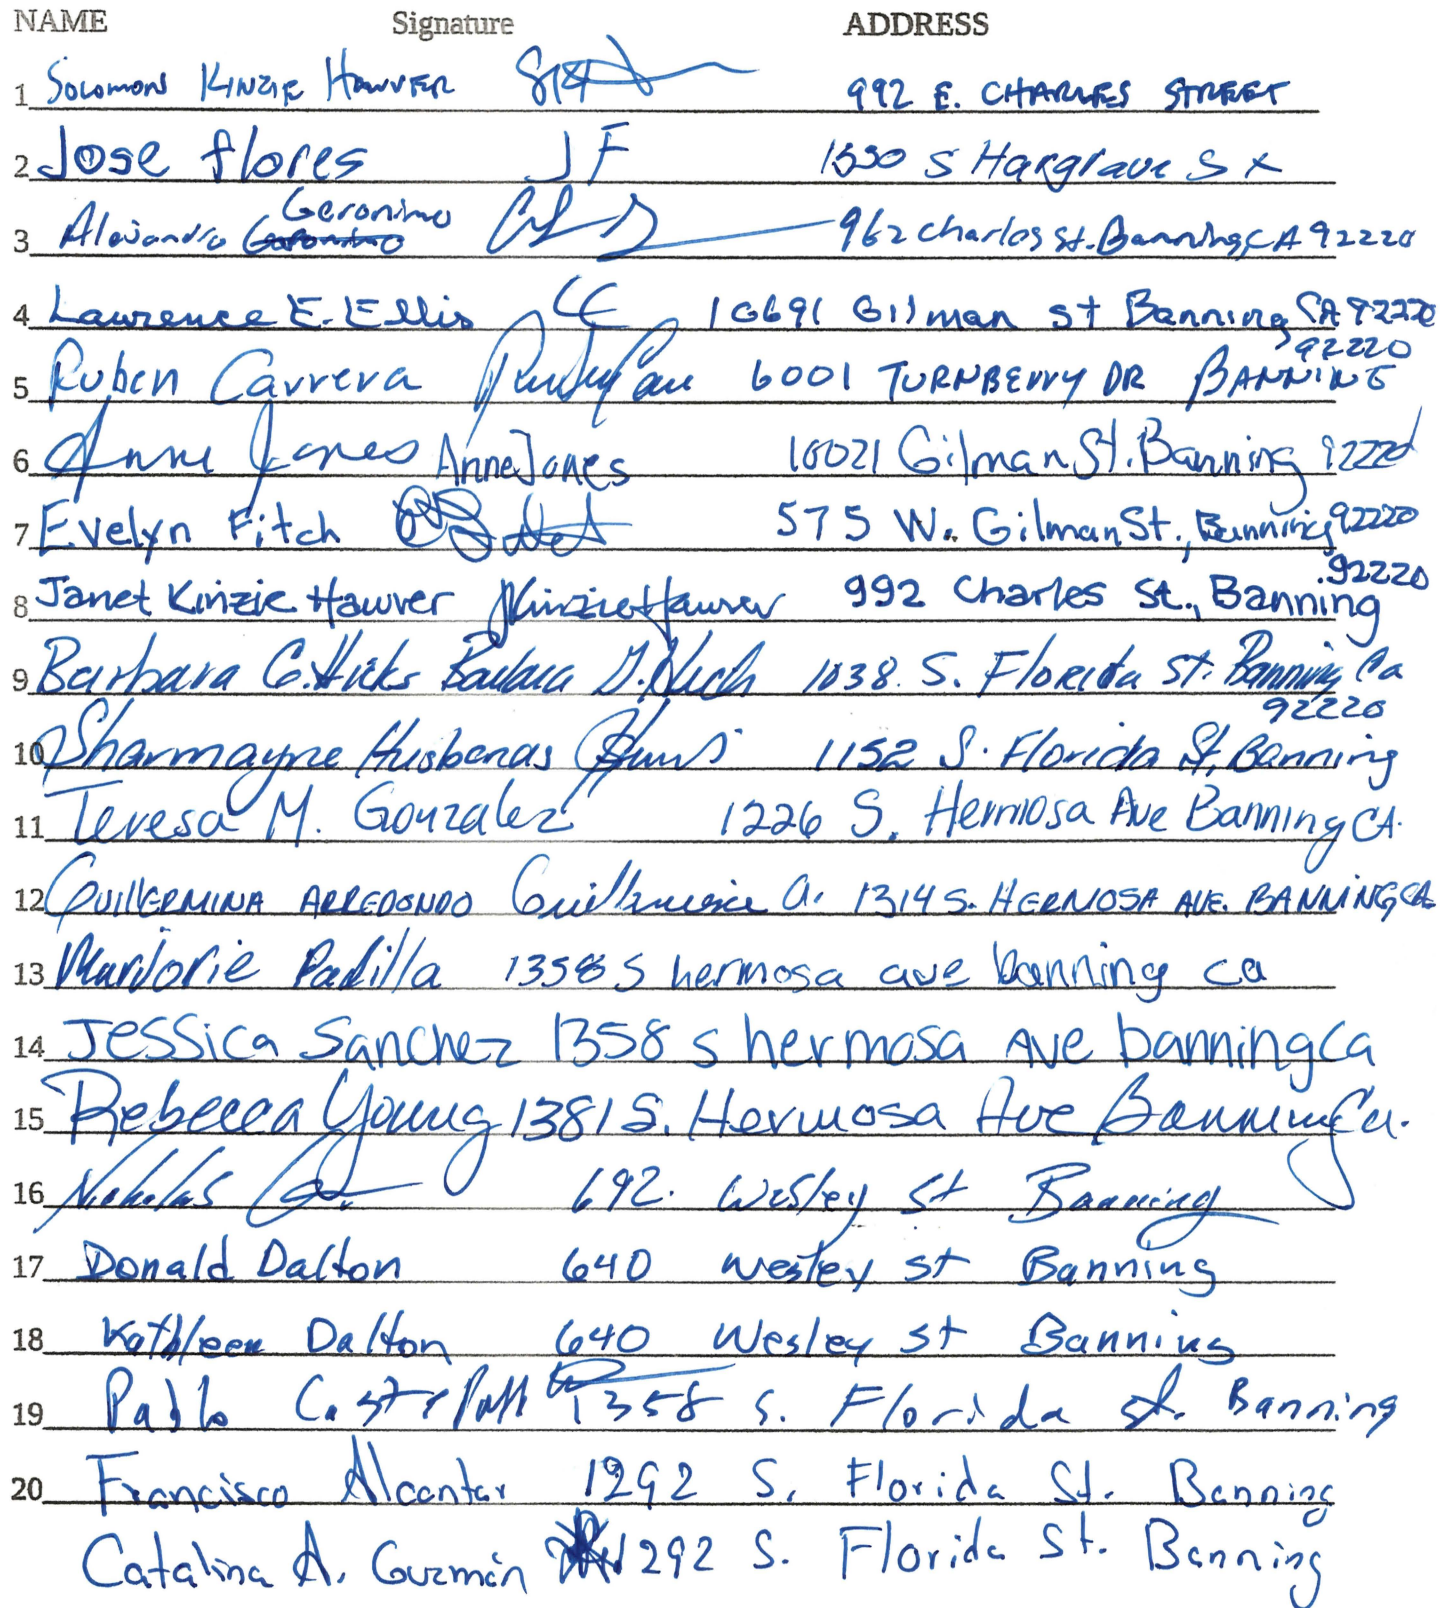 NAME Signature ADDRESS
1 Solomon Kinzie Hawver 992 E. CHARLES STREET
2 Jose flores JF 1550 S Hargrave St
3 Alejandro Geronimo 962 Charles St. Banning, CA 92220
4 Lawrence E. Ellis LE 10691 Gilman st Banning, CA 92220
92220
5 Ruben Carrera 6001 TURNBERRY DR BANNING
6 Anne Jones Anne Jones 10021 Gilman St. Banning 92220
7 Evelyn Fitch 575 W. Gilman St., Banning 92220
92220
8 Janet Kinzie Hawver JKinzieHawver 992 Charles St., Banning
9 Barbara G. Hicks Barbara G. Hicks 1038 S. Florida St. Banning Ca
92220
10 Sharmayne Husbands 1152 S. Florida St, Banning
11 Teresa M. Gonzalez 1226 S. Hermosa Ave Banning CA.
12 GUILLERMINA ARREDONDO Guillermina A. 1314 S. HERMOSA AVE. BANNING CA.
13 Marjorie Padilla 1358 S hermosa ave banning ca
14 Jessica Sanchez 1358 s hermosa Ave banning Ca
15 Rebecca Young 1381 S. Hermosa Ave Banning Ca.
16 Nicholas 692. Wesley St Banning
17 Donald Dalton 640 Wesley st Banning
18 Kathleen Dalton 640 Wesley st Banning
19 Pablo 1358 S. Florida st. Banning
20 Francisco Alcantar 1292 S. Florida St. Banning
Catalina A. Guzmán 1292 S. Florida St. Banning